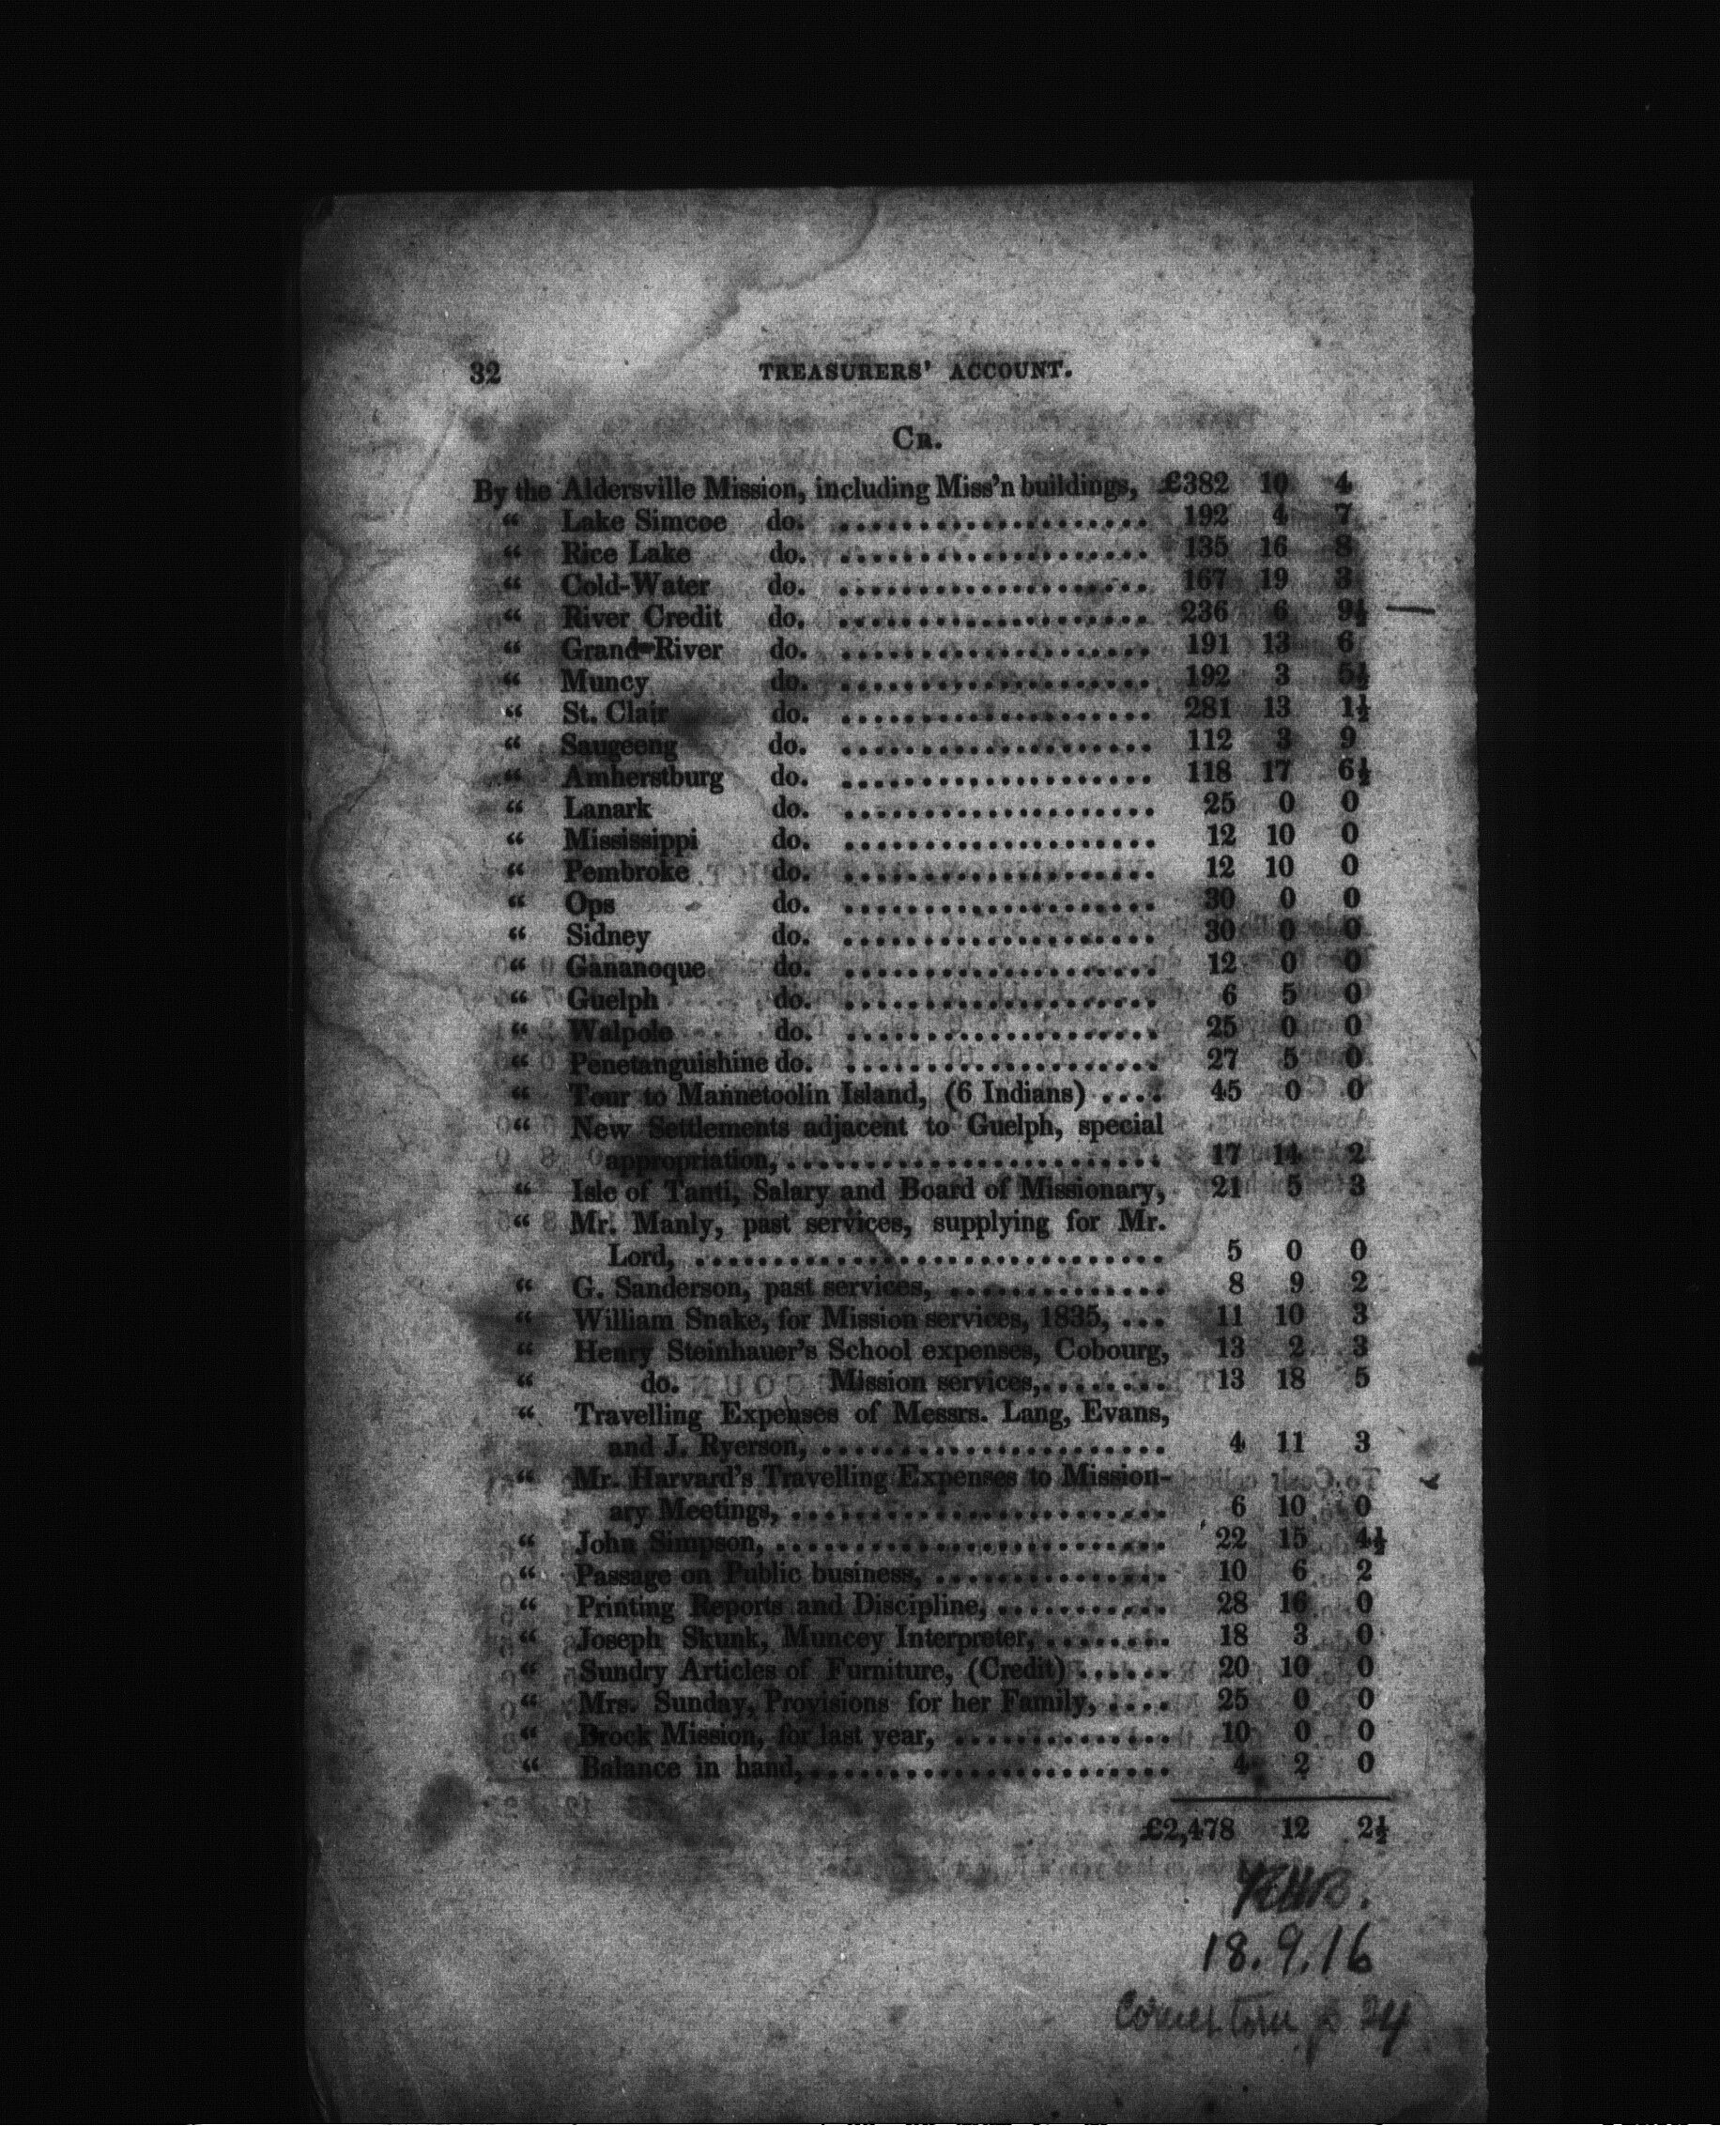 32 TREASURERS' ACCOUNT.
CR.
By the Aldersville Mission, including Miss'n buildings, £382 10 4
“ Lake Simcoe do. .................... 192 4 7
“ Rice Lake do. .................... 135 16 8
“ Cold-Water do. .................... 167 19 3
“ River Credit do. .................... 236 6 9½
“ Grand-River do. .................... 191 13 6
“ Muncy do. .................... 192 3 5½
“ St. Clair do. .................... 281 13 1½
“ Saugeeng do. .................... 112 3 9
“ Amherstburg do. .................... 118 17 6½
“ Lanark do. .................... 25 0 0
“ Mississippi do. .................... 12 10 0
“ Pembroke do. .................... 12 10 0
“ Ops do. .................... 30 0 0
“ Sidney do. .................... 30 0 0
“ Gananoque do. .................... 12 0 0
“ Guelph do. .................... 6 5 0
“ Walpole do. .................... 25 0 0
“ Penetanguishine do. .................... 27 5 0
“ Tour to Mannetoolin Island, (6 Indians) .... 45 0 0
“ New Settlements adjacent to Guelph, special
appropriation, ........................ 17 14 2
“ Isle of Tanti, Salary and Board of Missionary, 21 5 3
“ Mr. Manly, past services, supplying for Mr.
Lord, .............................. 5 0 0
“ G. Sanderson, past services, .............. 8 9 2
“ William Snake, for Mission services, 1835, ... 11 10 3
“ Henry Steinhauer's School expenses, Cobourg, 13 2 3
“ do. Mission services, ........ 13 18 5
“ Travelling Expenses of Messrs. Lang, Evans,
and J. Ryerson, ...................... 4 11 3
“ Mr. Harvard's Travelling Expenses to Mission-
ary Meetings, ........................ 6 10 0
“ John Simpson, ......................... 22 15 4½
“ Passage on Public business, ............... 10 6 2
“ Printing Reports and Discipline, ........... 28 16 0
“ Joseph Skunk, Muncey Interpreter, ........ 18 3 0
“ Sundry Articles of Furniture, (Credit) ...... 20 10 0
“ Mrs. Sunday, Provisions for her Family, .... 25 0 0
“ Brock Mission, for last year, .............. 10 0 0
“ Balance in hand, ....................... 4 2 0
£2,478 12 2½
18.9.16
Corner torn p. 24